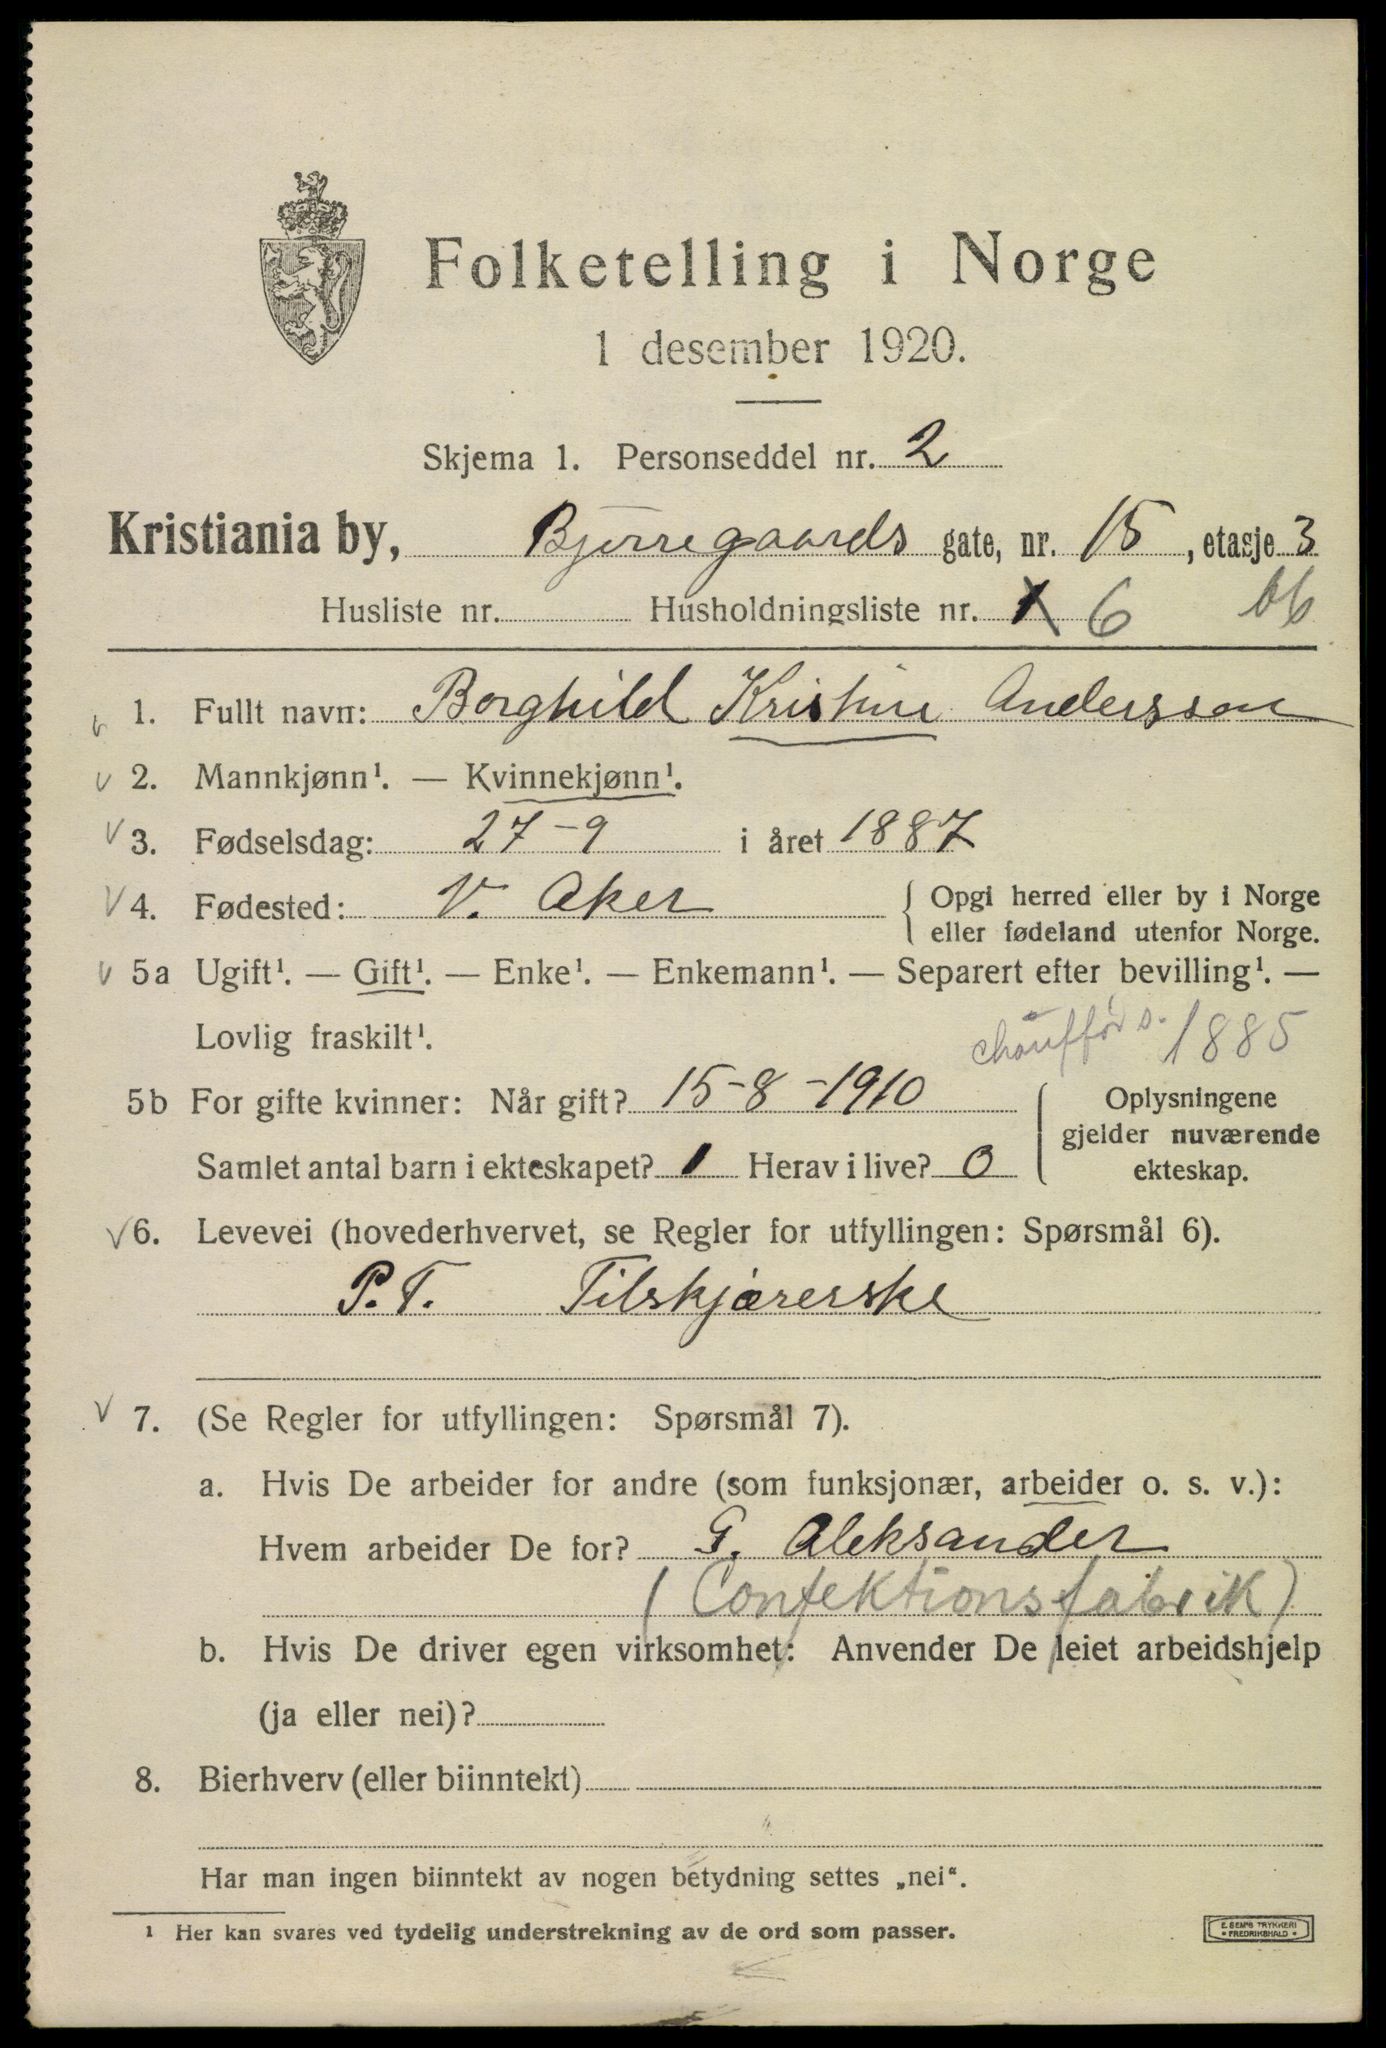 Folketelling i Norge
1 desember 1920.
Skjema 1. Personseddel nr. 2
Kristiania by, Bjerregaards gate, nr. 15, etasje 3
Husliste nr. Husholdningsliste nr. 1 6 66
1. Fullt navn: Borghild Kristine Andersson
2. Mannkjønn¹. — Kvinnekjønn¹.
3. Fødselsdag: 27-9 i året 1887
4. Fødested: V. Aker { Opgi herred eller by i Norge
eller fødeland utenfor Norge.
5a Ugift¹. — Gift¹. — Enke¹. — Enkemann¹. — Separert efter bevilling¹. —
Lovlig fraskilt¹. chauffør s. 1885
5b For gifte kvinner: Når gift? 15-8-1910 { Oplysningene
gjelder nuværende
Samlet antal barn i ekteskapet? 1 Herav i live? 0 ekteskap.
6. Levevei (hovederhvervet, se Regler for utfyllingen: Spørsmål 6).
P.T. Tilskjærerske
7. (Se Regler for utfyllingen: Spørsmål 7).
a. Hvis De arbeider for andre (som funksjonær, arbeider o. s. v.):
Hvem arbeider De for? G. Aleksander
(Confektionsfabrik)
b. Hvis De driver egen virksomhet: Anvender De leiet arbeidshjelp
(ja eller nei)?
8. Bierhverv (eller biinntekt) —
Har man ingen biinntekt av nogen betydning settes „nei“.
¹ Her kan svares ved tydelig understrekning av de ord som passer.
E. SEM'S TRYKKERI
• FREDRIKSHALD •